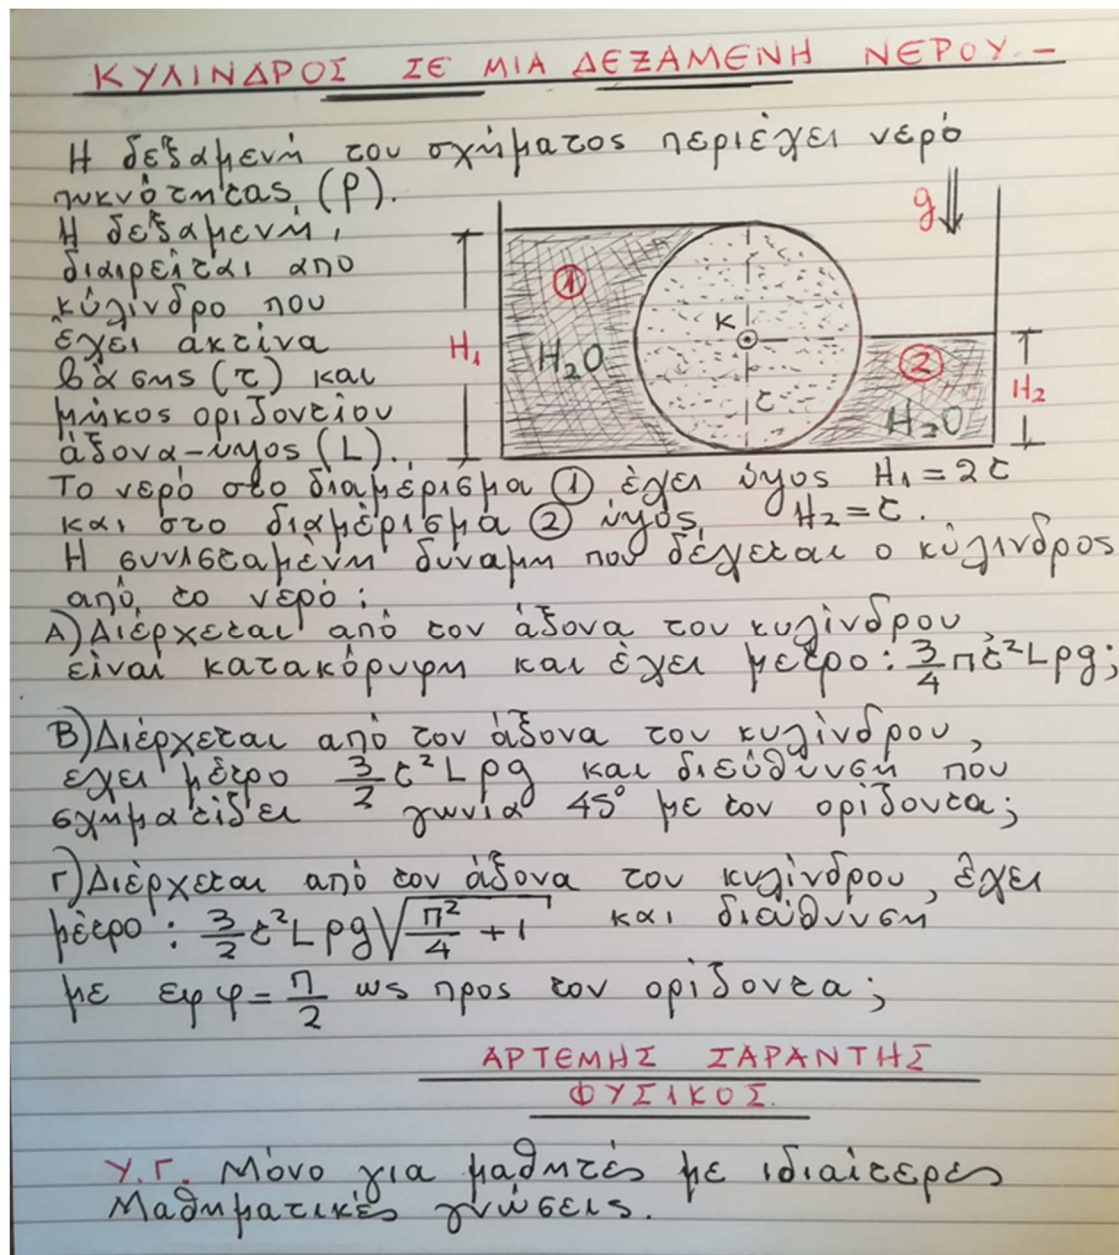 ΚΥΛΙΝΔΡΟΣ ΣΕ ΜΙΑ ΔΕΞΑΜΕΝΗ ΝΕΡΟΥ.-
Η δεξαμενή του σχήματος περιέχει νερό
πυκνότητας (ρ).
Η δεξαμενή,
διαιρείται από
κύλινδρο που
έχει ακτίνα
βάσης (τ) και
μήκος οριζοντίου
άξονα-ύψος (L).
g
1
H₂O
H₁
K
τ
2
H₂O
H₂
Το νερό στο διαμέρισμα 1 έχει ύψος H₁ = 2τ
και στο διαμέρισμα 2 ύψος H₂ = τ.
Η συνισταμένη δύναμη που δέχεται ο κύλινδρος
από το νερό:
Α) Διέρχεται από τον άξονα του κυλίνδρου
είναι κατακόρυφη και έχει μέτρο: 3/4 πτ²Lρg;
Β) Διέρχεται από τον άξονα του κυλίνδρου,
έχει μέτρο 3/2 τ²Lρg και διεύθυνση που
σχηματίζει γωνία 45° με τον ορίζοντα;
Γ) Διέρχεται από τον άξονα του κυλίνδρου, έχει
μέτρο: 3/2 τ²Lρg√(π²/4 + 1) και διεύθυνση
με εφφ = π/2 ως προς τον ορίζοντα;
ΑΡΤΕΜΗΣ ΣΑΡΑΝΤΗΣ
ΦΥΣΙΚΟΣ.
Υ.Γ. Μόνο για μαθητές με ιδιαίτερες
Μαθηματικές γνώσεις.